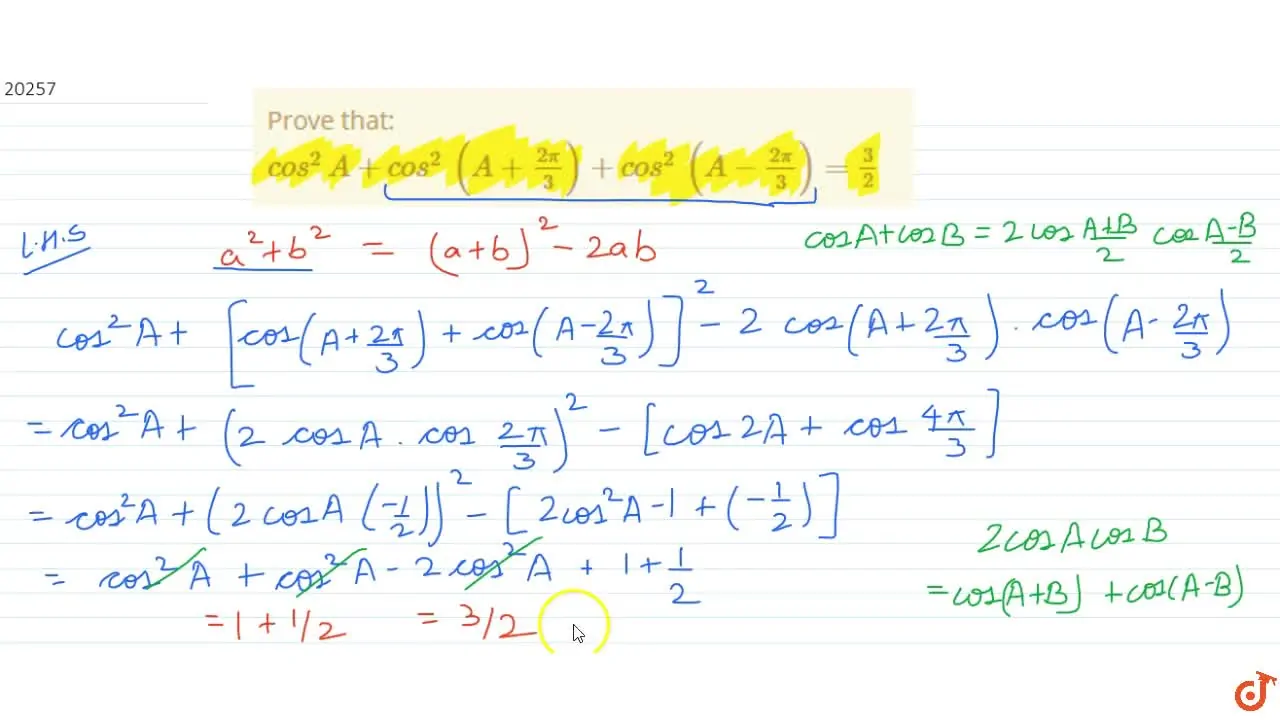 20257
Prove that:
cos² A + cos² (A + 2π/3) + cos² (A − 2π/3) = 3/2
L.H.S
a² + b² = (a+b)² − 2ab
cosA + cosB = 2 cos A+B/2 cos A−B/2
cos²A + [cos(A + 2π/3) + cos(A − 2π/3)]² − 2 cos(A + 2π/3) . cos(A − 2π/3)
= cos²A + (2 cosA . cos 2π/3)² − [cos2A + cos 4π/3]
= cos²A + (2cosA (−1/2))² − [2cos²A − 1 + (−1/2)]
= cos²A + cos²A − 2cos²A + 1 + 1/2
= 1 + 1/2 = 3/2
2cosAcosB
= cos(A+B) + cos(A−B)